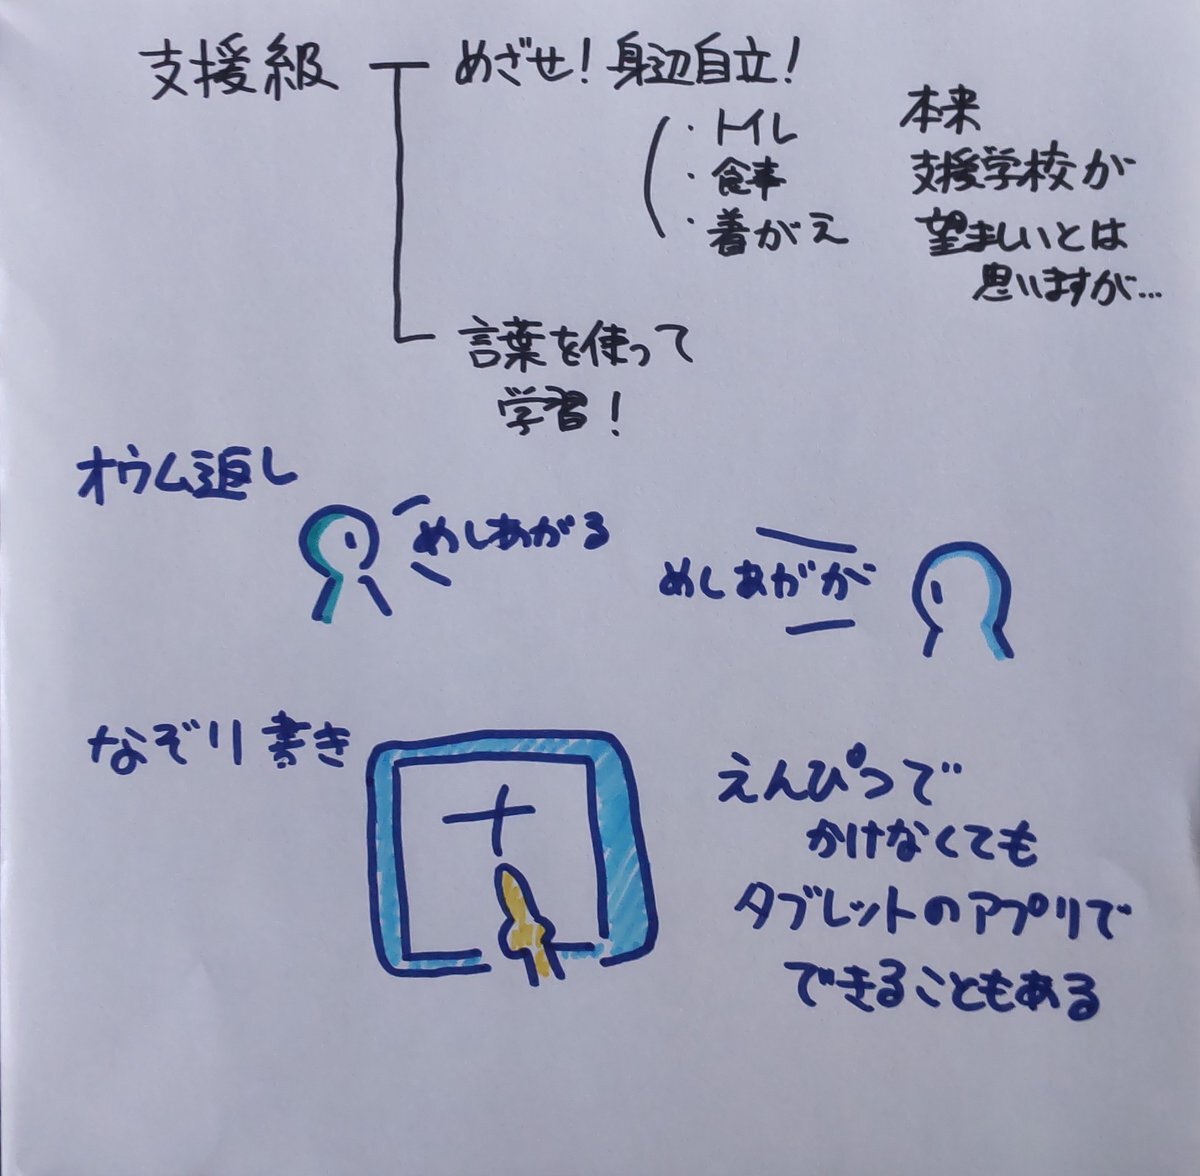 支援級
めざせ！身辺自立！
・トイレ
・食事
・着がえ
本来
支援学校が
望ましいとは
思いますが…
言葉を使って
学習！
オウム返し
めしあがる
めしあがが
なぞり書き
えんぴつで
かけなくても
タブレットのアプリで
できることもある